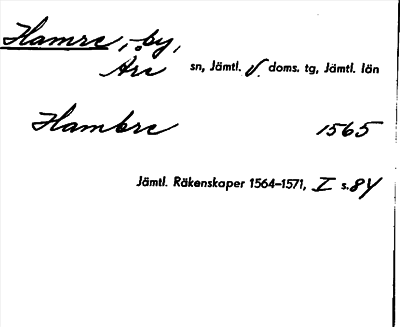 Hamre, by,
Åre sn, Jämtl. V. doms. tg, Jämtl. län
Hambre 1565
Jämtl. Räkenskaper 1564-1571, I s. 84